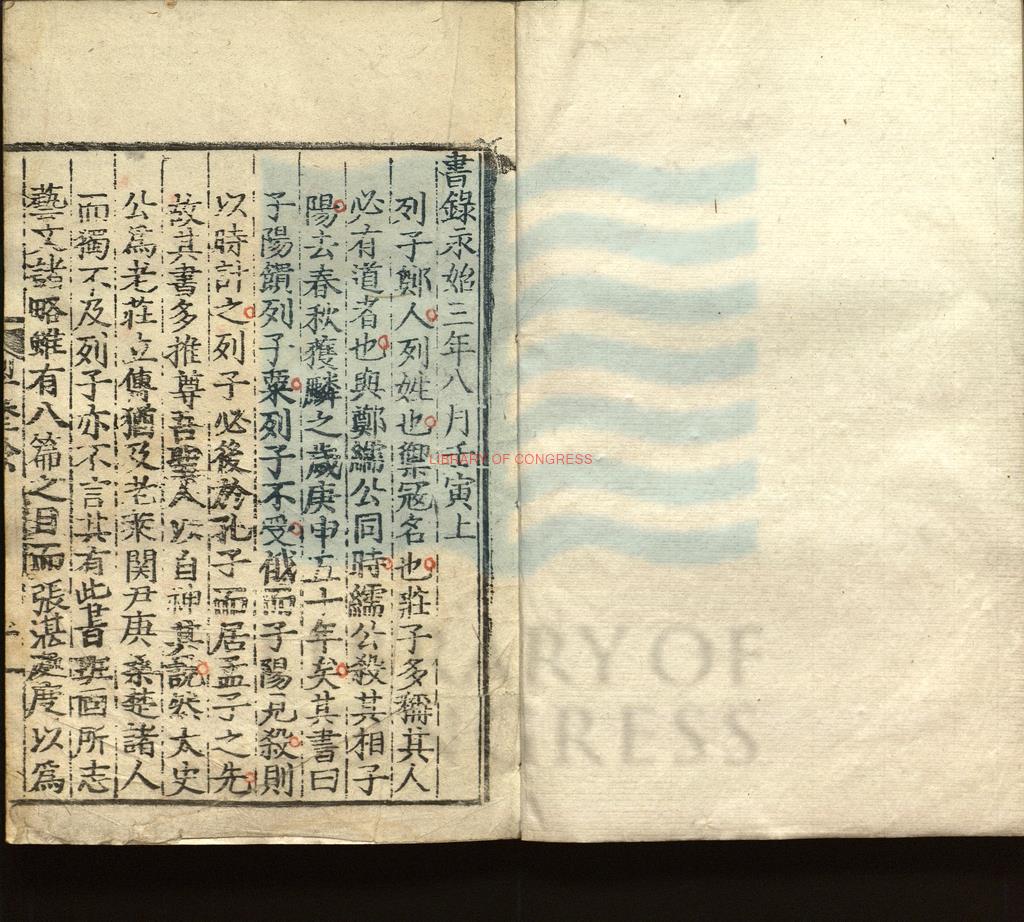 書錄永始三年八月壬寅上
列子鄭人列姓也禦冦名也莊子多稱其人
必有道者也與鄭繻公同時繻公殺其相子
陽去春秋獲麟之歲庚申五十年矣其書曰
子陽饋列子粟列子不受俄而子陽見殺則
以時計之列子必後於孔子而居孟子之先
故其書多推尊吾聖人以自神其說然太史
公爲老莊立傳猶及老萊関尹庚桑楚諸人
而獨不及列子亦不言其有此書班固所志
藝文諸略雖有八篇之目而張湛處度以爲
LIBRARY OF CONGRESS